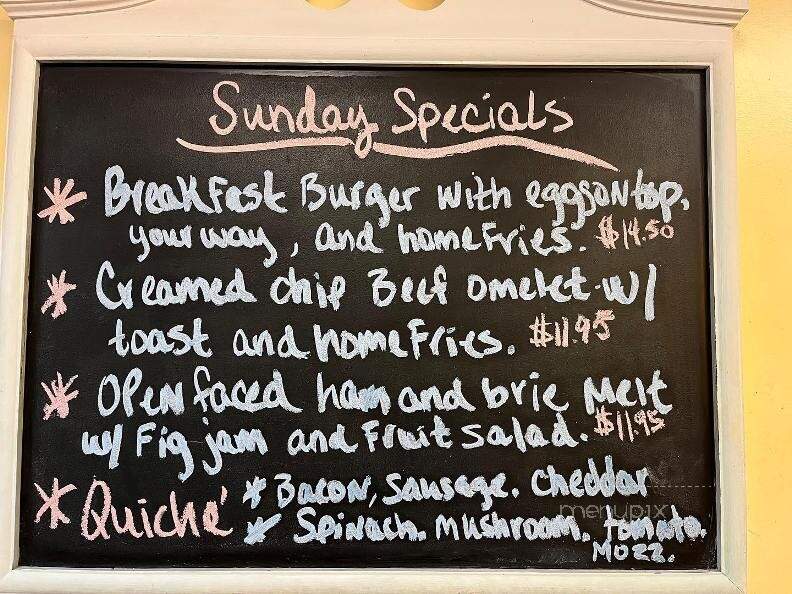 Sunday Specials
* Breakfast Burger with eggs on top,
your way, and home fries. $14.50
* Creamed chip Beef omelet w/
toast and home fries. $11.95
* Open faced ham and brie Melt
w/ Fig jam and fruit salad. $11.95
* Quiché * Bacon, Sausage. Cheddar
* Spinach. Mushroom. tomato.
Mozz.
menupix